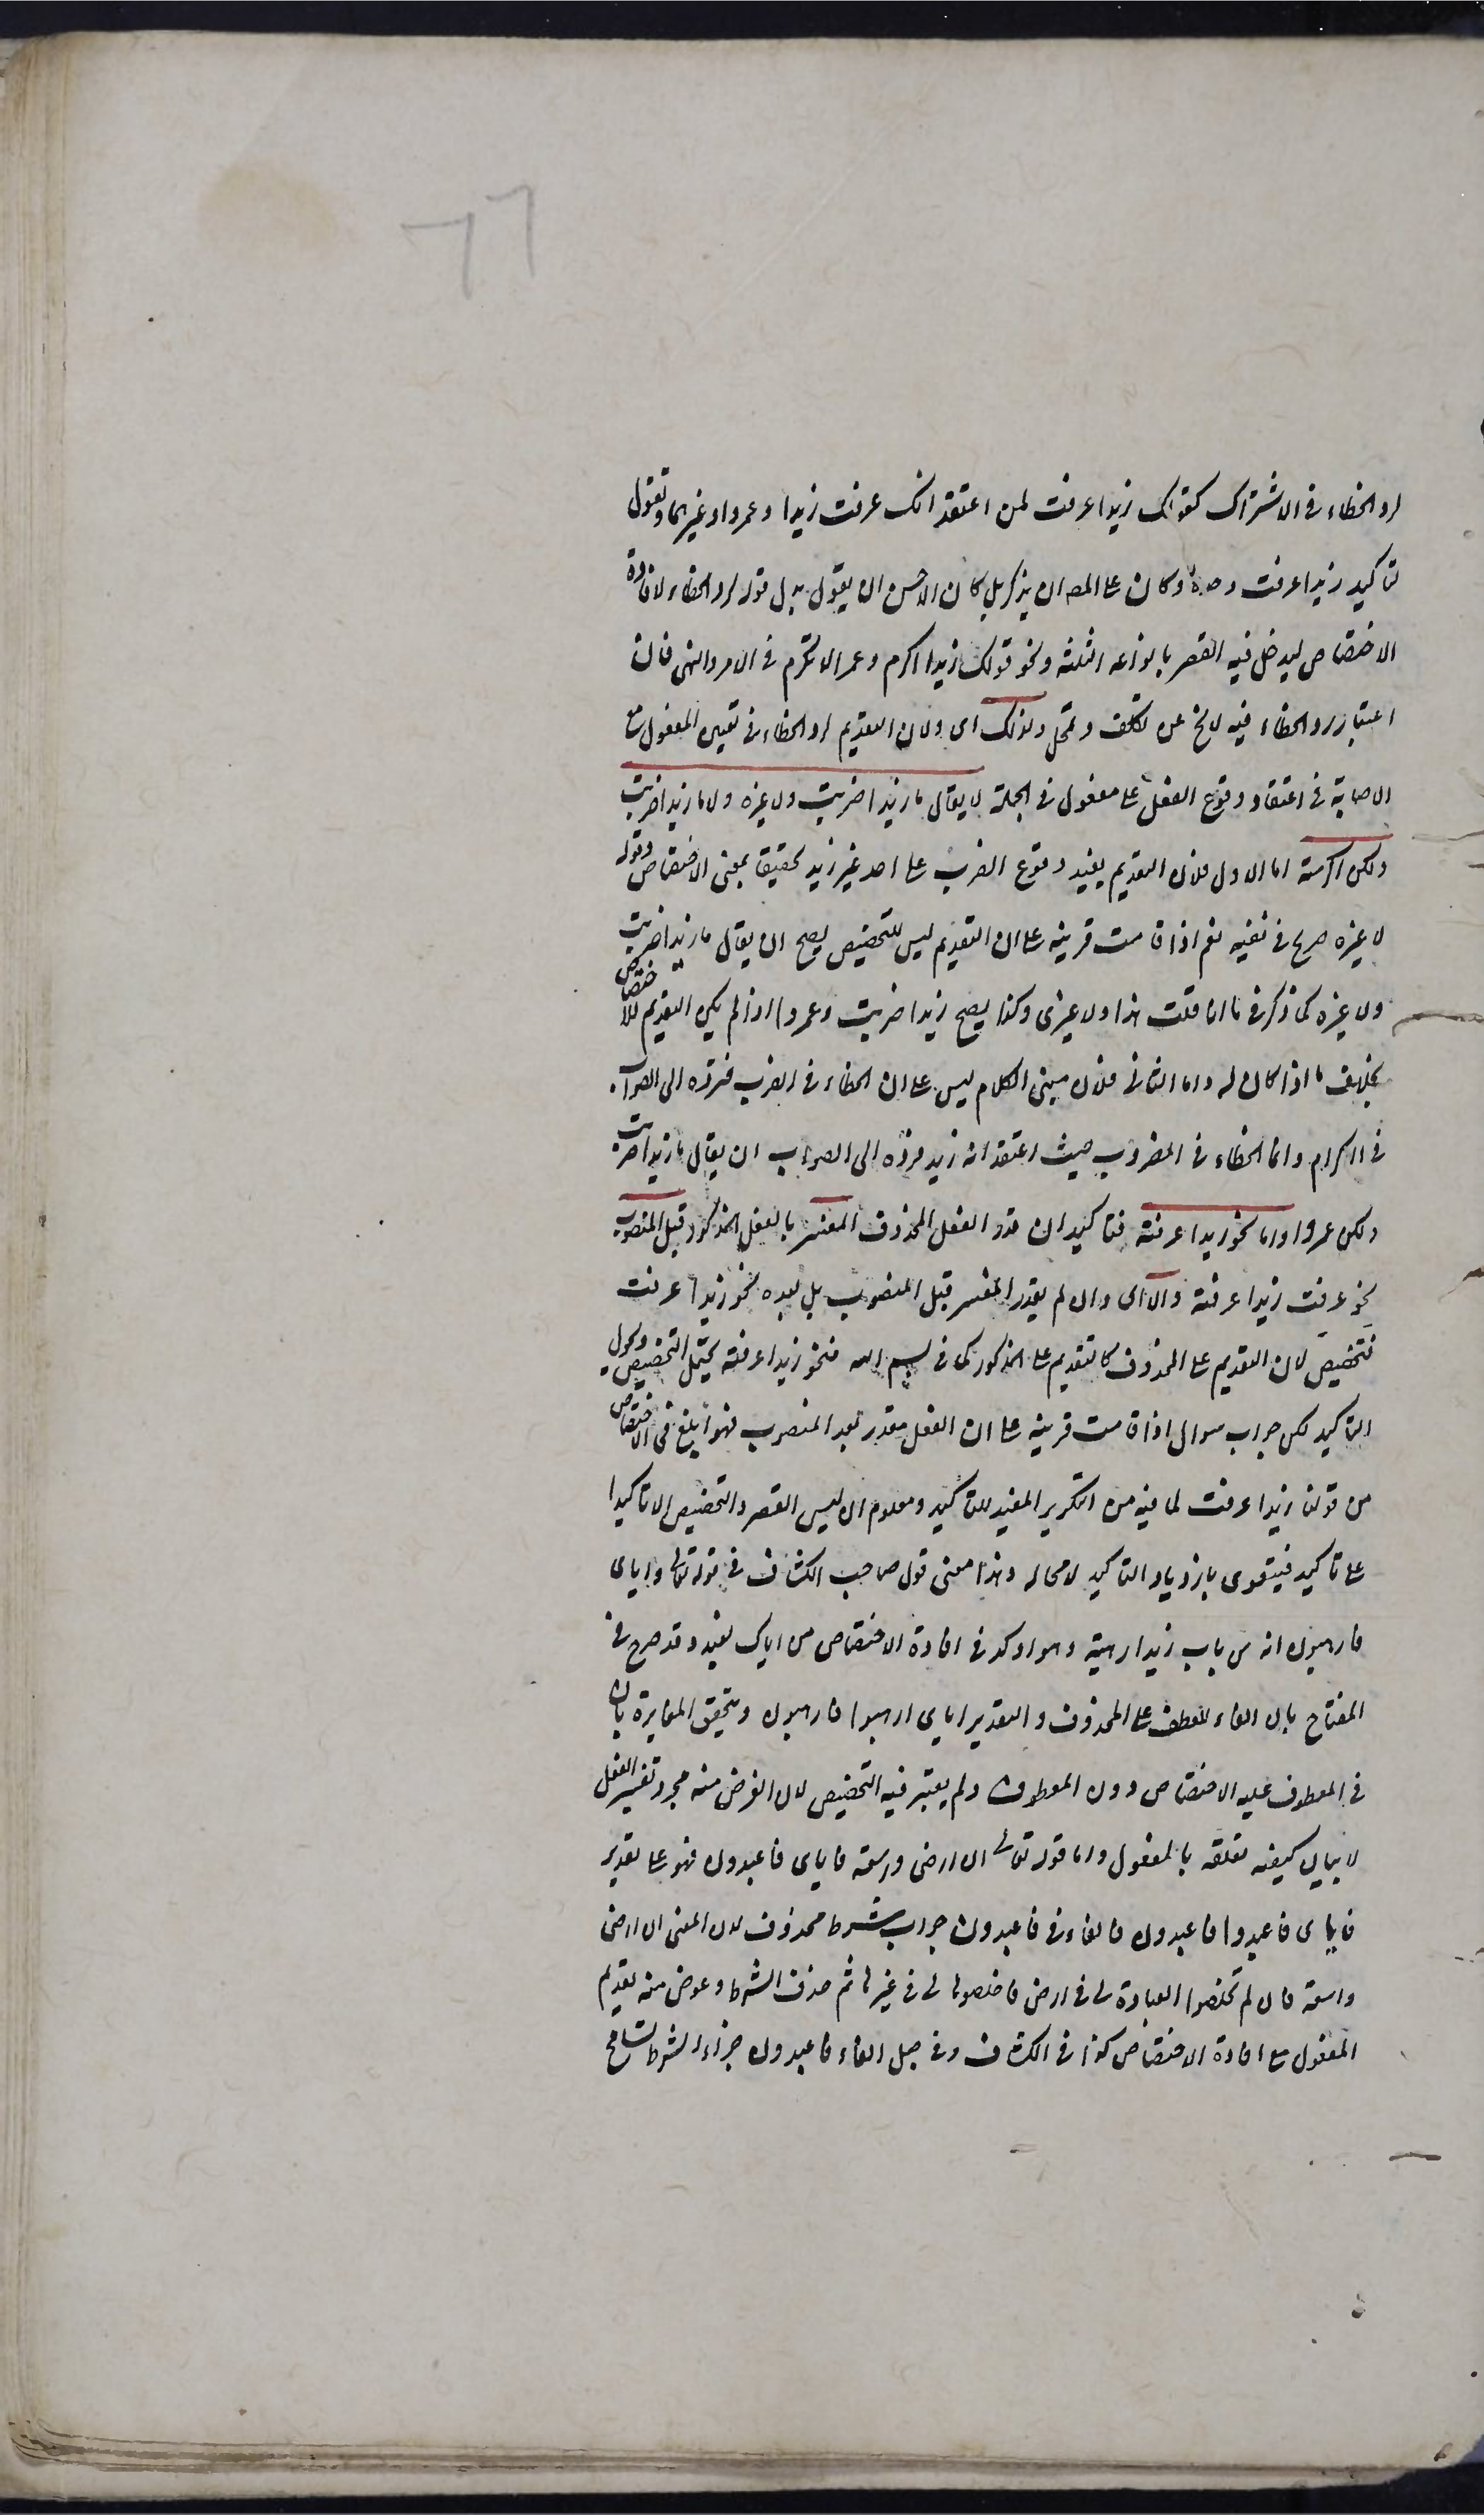 ٦٦
لرد الخطاء فى الاشتراك كقولك زيدا عرفت لمن اعتقد انك عرفت زيدا وعمروا وغيرهما وتقول
لتاكيد زيدا عرفت وحده وكان على المصـ ان يذكر بل كان الاحسن ان يقول بدل قوله لرد الخطاء لافادة
الاختصاص ليدخل فيه القصر بانواعه الثلثة ونحو قولك زيدا اكرم وعمرا لا تكرم فى الامر والنهى فان
اعتبار رد الخطاء فيه لا يخ عن تكلف وتمحل ولذلك اى ولان التقديم لرد الخطاء فى تعيين المفعول مع
الاصابة فى اعتقاد وقوع الفعل على مفعول فى الجملة لا يقال ما زيدا ضربت ولا غيره ولا ما زيدا ضربت
ولكن اكرمته اما الاول فلان التقديم يفيد وقوع الضرب على احد غير زيد تحقيقا بمعنى الاختصاص وقوله
لا غيره صريح فى نفيه نعم اذا قامت قرينة على ان التقديم ليس للتخصيص يصح ان يقال ما زيدا ضربت
ولا غيره كما ذكر فى ما انا قلت هذا ولا غيرى وكذا يصح زيدا ضربت وعمروا اذا لم يكن التقديم للاختصاص
بخلاف ما اذا كان له واما الثانى فلان مبنى الكلام ليس على ان الخطاء فى الضرب فترده الى الصواب
فى الاكرام وانما الخطاء فى المضروب حيث اعتقد انه زيد فرده الى الصواب ان يقال ما زيدا ضربت
ولكن عمروا واما نحو زيدا عرفته فتاكيد ان قدر الفعل المحذوف المفسر بالفعل المذكور قبل المنصوب
نحو عرفت زيدا عرفته والا اى وان لم يقدر المفسر قبل المنصوب بل بعده نحو زيدا عرفت
فتخصيص لان التقديم على المحذوف كالتقديم على المذكور كما فى بسم الله فنحو زيدا عرفته يحتمل التخصيص
التاكيد لكن جواب سوال اذا قامت قرينة على ان الفعل مقدر بعد المنصوب فهو ابلغ فى الاختصاص
من قولنا زيدا عرفت لما فيه من التكرير المفيد للتاكيد ومعلوم ان ليس القصر والتخصيص الا تاكيدا
على تاكيد فيتقوى بازدياد التاكيد لا محاله وهذا معنى قول صاحب الكشاف فى قوله تعالى واياى
فارهبون انه من باب زيدا رهبته وهو اوكد فى افادة الاختصاص من اياك نعبد وقد صرح فى
المفتاح بان الفاء للعطف على المحذوف والتقدير اياى ارهبوا فارهبون ويتحقق المغايرة بان
فى المعطوف عليه الاختصاص دون المعطوف ولم يعتبر فيه التخصيص لان الغرض منه مجرد تفسير الفعل
لا بيان كيفية تعلقه بالمفعول واما قوله تعالى ان ارضى واسعة فاياى فاعبدون فهو على تقدير
فاياى فاعبدوا فاعبدون فالفاء فى فاعبدون جواب شرط محذوف لان المعنى ان ارضى
واسعة فان لم تخلصوا العبادة لى فى ارض فاخلصوها لى فى غيرها ثم حذف الشرط وعوض منه تقديم
المفعول مع افادة الاختصاص كذا فى الكشاف وفى جعل الفاء فاعبدون جزاء الشرط تسامح